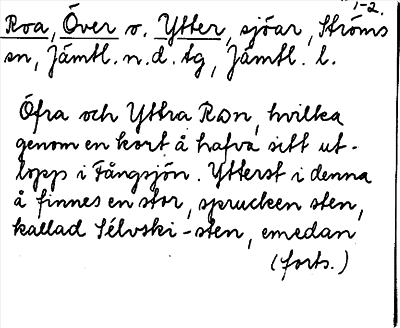 1-2.
Roa, Över o. Ytter, sjöar, Ströms
sn, Jämtl. n. d. tg, Jämtl. l.
Öfra och Yttra Ron, hvilka
genom en kort å hafva sitt ut-
lopp i Fångsjön. Ytterst i denna
å finnes en stor, sprucken sten,
kallad Sélvski-sten, emedan
(forts.)